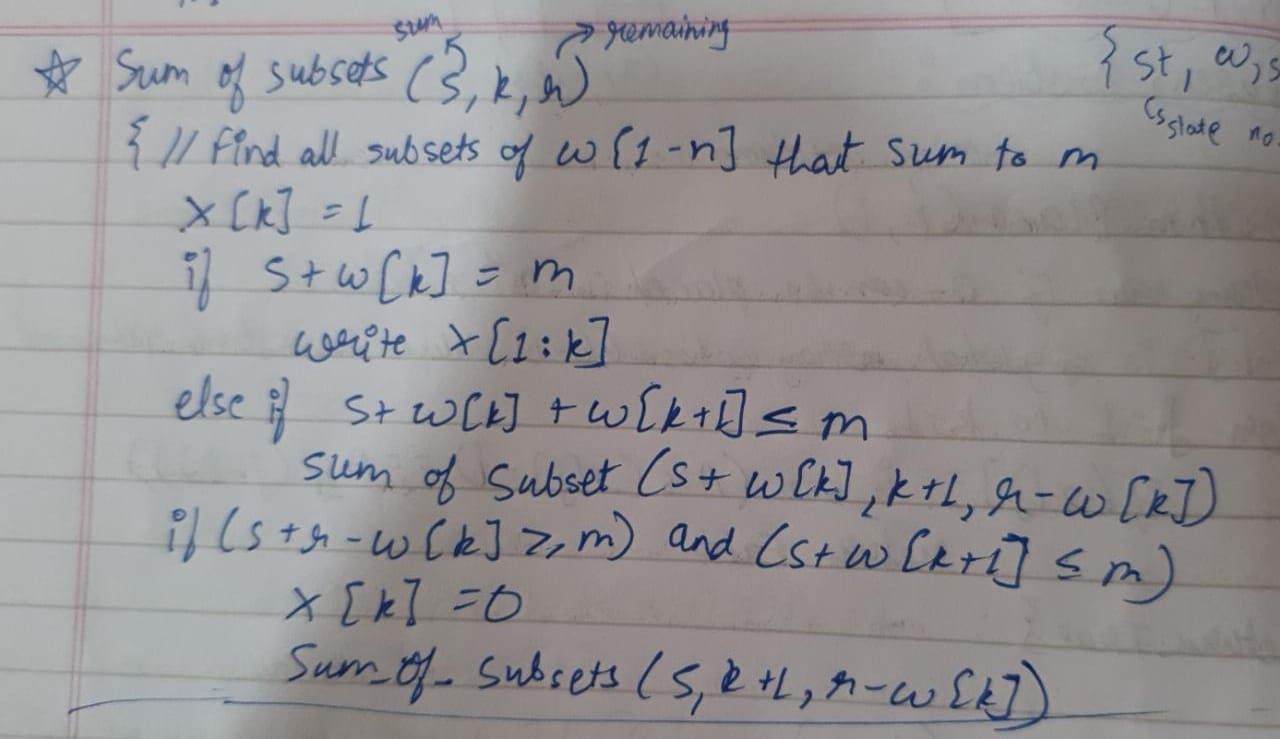 sum → remaining
☆ Sum of subsets (s, k, r) { st, w, s
↳ state no.
{ // Find all subsets of w[1-n] that sum to m
x[k] = 1
if s + w[k] = m
write x[1:k]
else if s + w[k] + w[k+1] ≤ m
sum of subset (s + w[k], k+1, r - w[k])
if (s + r - w[k] ≥ m) and (s + w[k+1] ≤ m)
x[k] = 0
Sum_of_subsets (s, k+1, r - w[k])